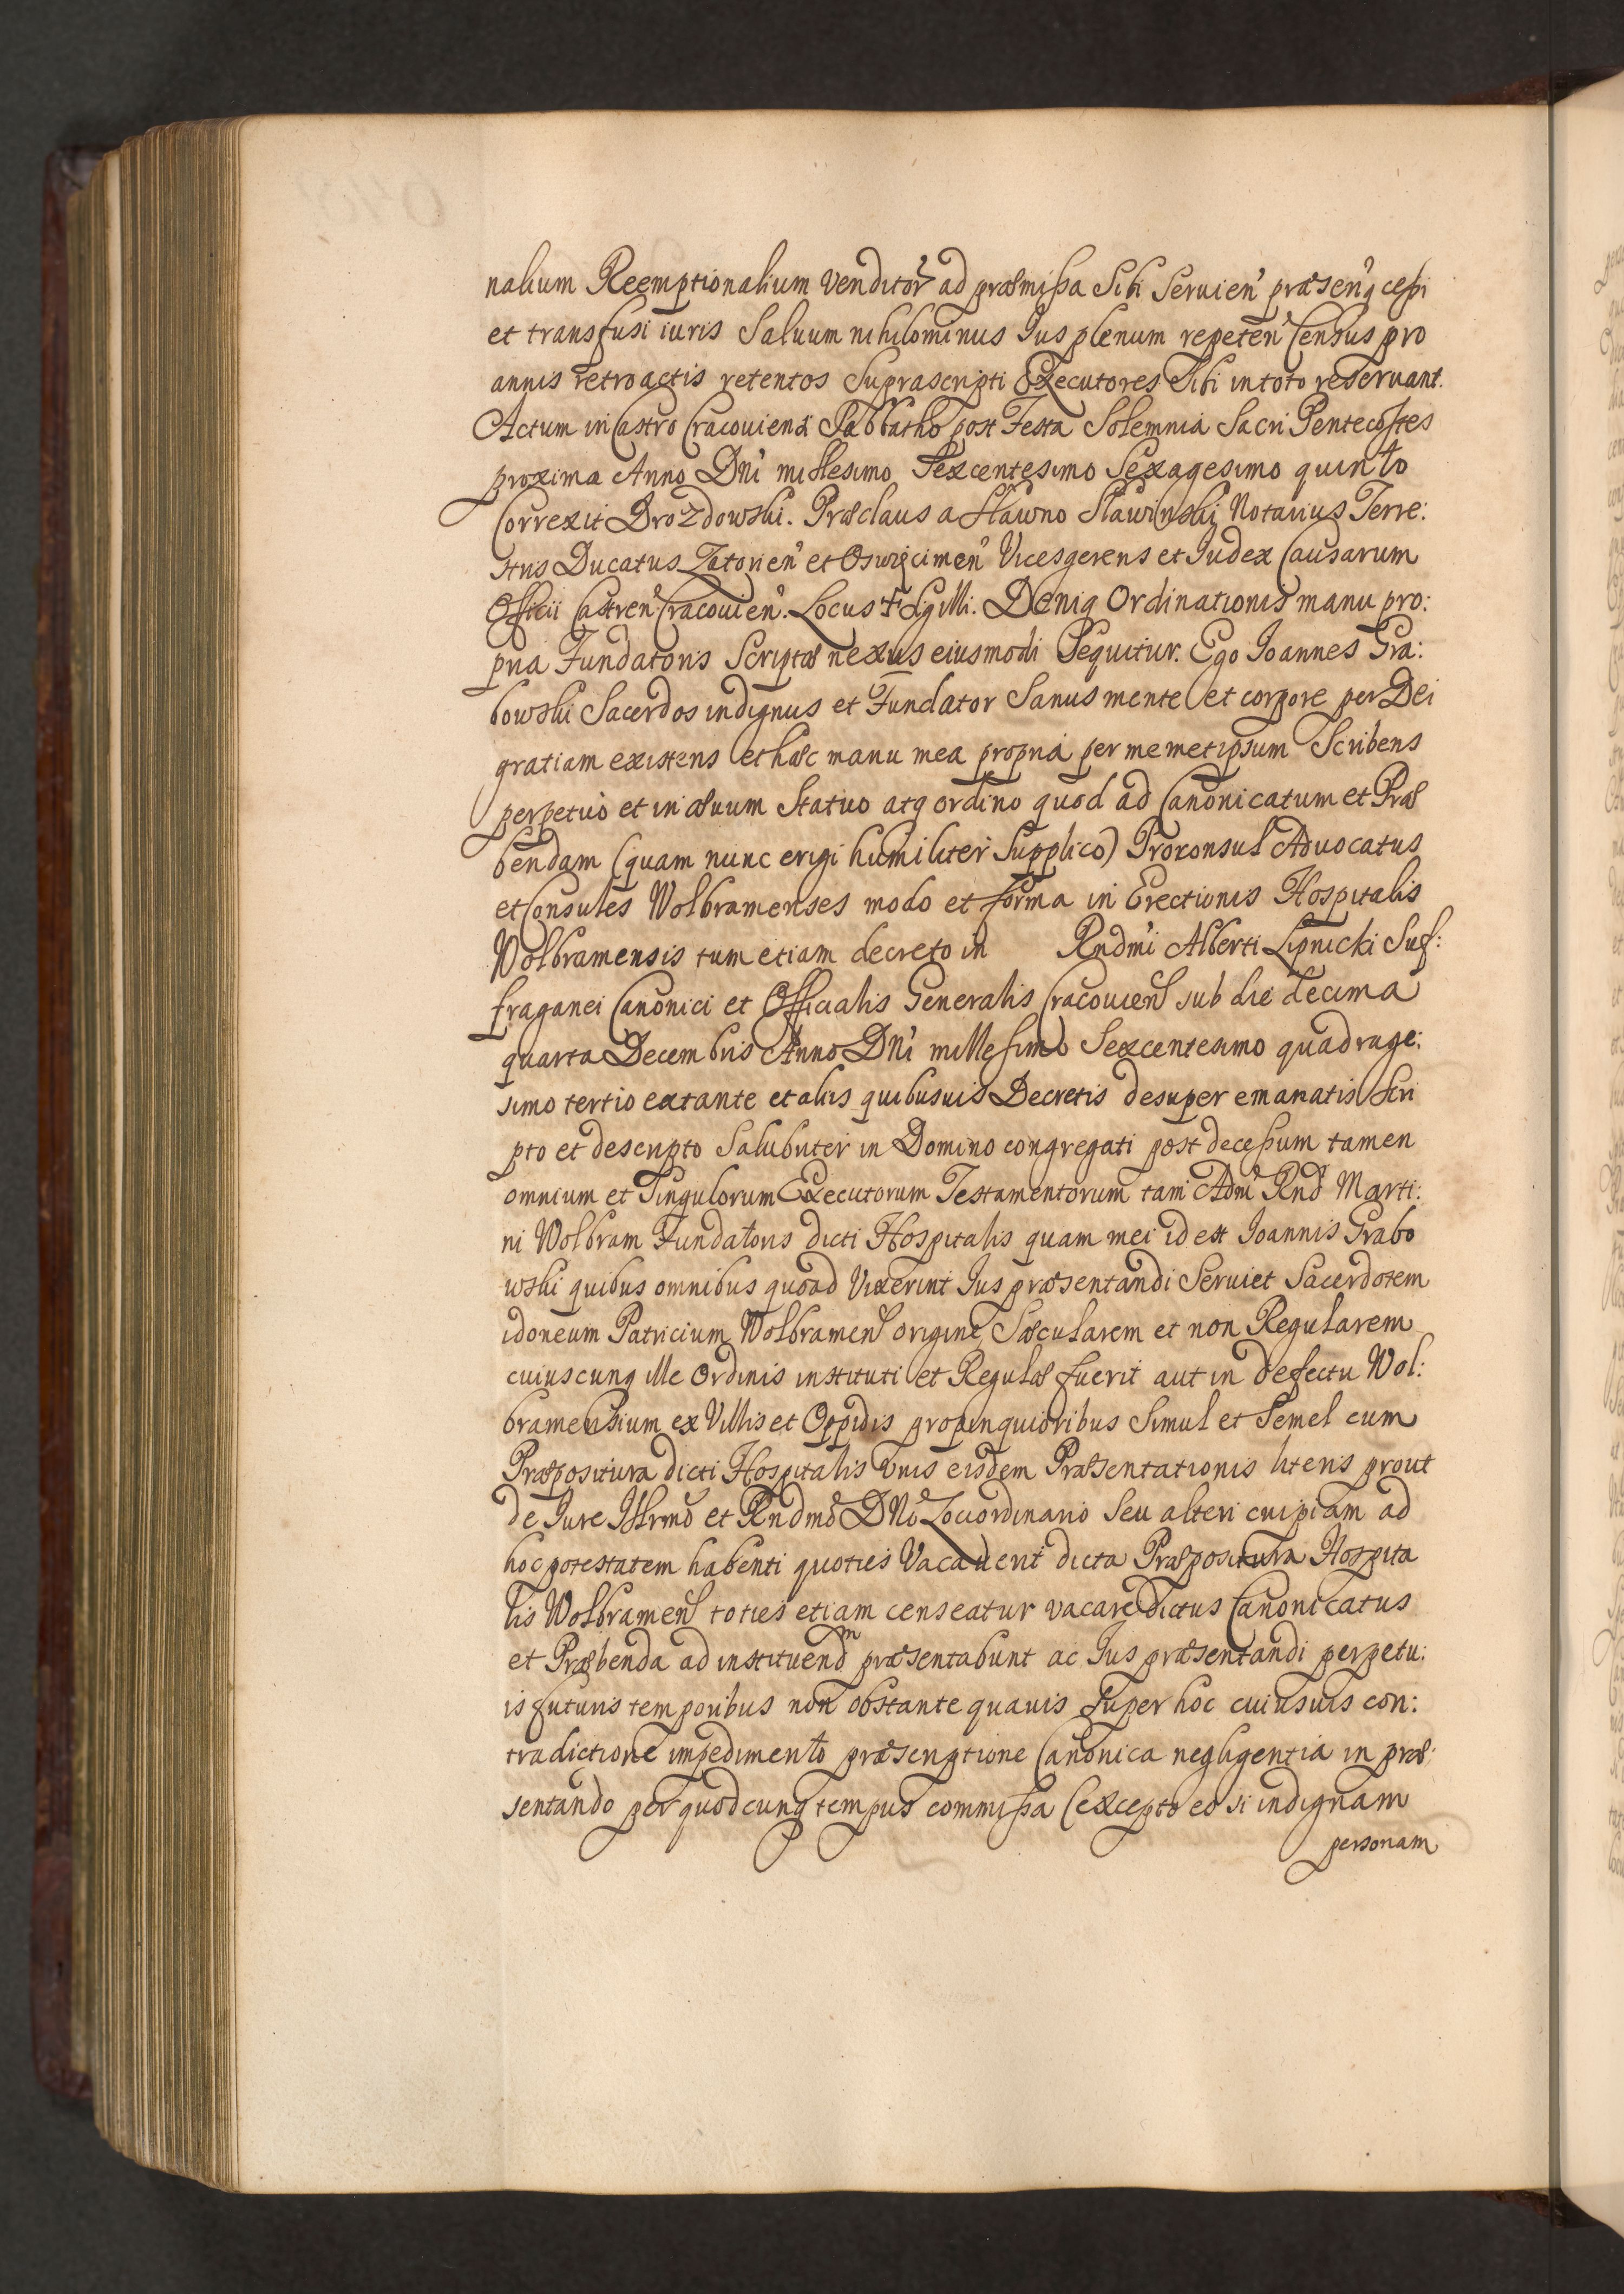 nalium Reemptionalium venditor ad præmissa Sibi Seruien præsenq cessi
et transfusi iuris Saluum nihilominus Jus plenum repeten Census pro
annis retroactis retentos Suprascripti Executores Sibi intoto reseruant.
Actum in Castro Cracouiensi Sabbatho post Festa Solemnia Sacri Pentecostes
proxima Anno Dni millesimo Sexcentesimo Sexagesimo quinto
Correxit Drozdowski. Præclaus a Sławno Sławinski Notarius Terre:
stris Ducatus Zatorien et Oswięcimen Vicesgerens et Judex Causarum
Officii Castren Cracouien. Locus + Sigilli. Deniq Ordinationis manu pro:
pria Fundatoris Scriptæ nexus eiusmodi Sequitur. Ego Joannes Gra:
bowski Sacerdos indignus et Fundator Sanus mente et corpore per Dei
gratiam existens et hæc manu mea propria per memetipsum Scribens
perpetuò et in æuum Statuo atq ordino quod ad Canonicatum et Præ
bendam (quam nunc erigi humiliter Supplico) Proconsul Aduocatus
et Consules Wolbramenses modo et forma in Erectionis Hospitalis
Wolbramensis tum etiam decreto in Rndmi Alberti Lipnicki Suf:
fraganei Canonici et Officialis Generalis Cracouien sub die decima
quarta Decembris Anno Dni millesimo Sexcentesimo quadrage:
simo tertio extante et aliis quibusuis Decretis desuper emanatis Scri
pto et descripto Salubriter in Domino congregati post decessum tamen
omnium et Singulorum Executorum Testamentorum tam Adm Rnd Marti:
ni Wolbram Fundatoris dicti Hospitalis quam mei id est Joannis Grabo
wski quibus omnibus quoad Vixerint Jus præsentandi Seruiet Sacerdotem
idoneum Patricium Wolbramen origine Sæcularem et non Regularem
cuiuscunq ille Ordinis instituti et Regulæ fuerit aut in defectu Wol:
bramensium ex Villis et Oppidis propinquioribus Simul et Semel cum
Præpositura dicti Hospitalis Vnis eisdem Præsentationis literis prout
de Jure Illrmo et Rndmo DNo Lociordinario Seu alteri cuipiam ad
hoc potestatem habenti quoties Vacauerit dicta Præpositura Hospita
lis Wolbramen toties etiam censeatur vacare dictus Canonicatus
et Præbenda ad instituendm præsentabunt ac Jus præsentandi perpetu:
is futuris temporibus non obstante quauis Super hoc cuiusuis con:
tradictione impedimento præscriptione Canonica negligentia in præ:
sentando per quodcunq tempus commissa (excepto eo si indignam
personam